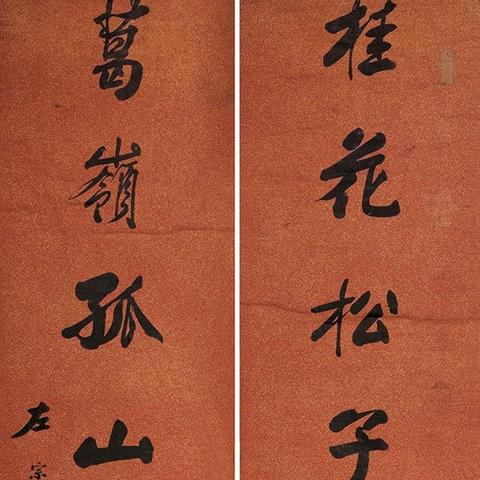 桂花松子
葛嶺孤山
左宗